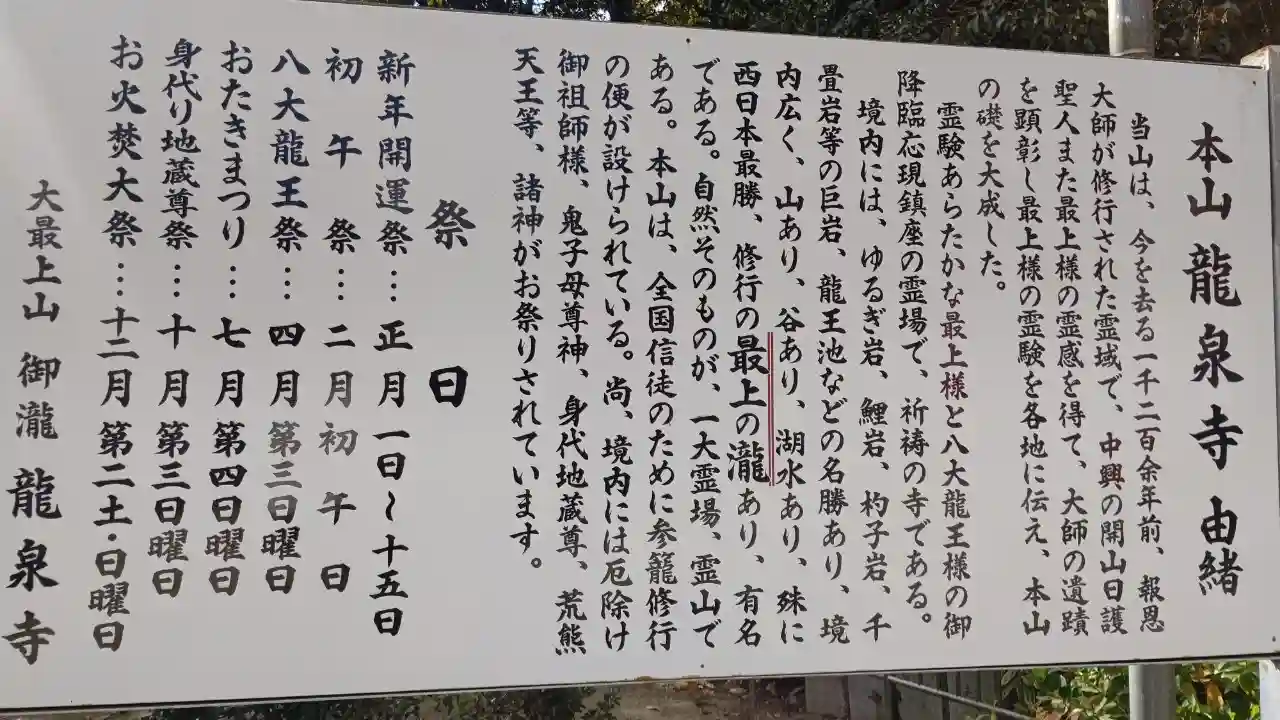 本山 龍泉寺 由緒
当山は、今を去る一千二百余年前、報恩
大師が修行された霊域で、中興の開山日護
聖人また最上様の霊感を得て、大師の遺蹟
を顕彰し最上様の霊験を各地に伝え、本山
の礎を大成した。
霊験あらたかな最上様と八大龍王様の御
降臨応現鎮座の霊場で、祈祷の寺である。
境内には、ゆるぎ岩、鯉岩、杓子岩、千
畳岩等の巨岩、龍王池などの名勝あり、境
内広く、山あり、谷あり、湖水あり、殊に
西日本最勝、修行の最上の瀧あり、有名
である。自然そのものが、一大霊場、霊山で
ある。本山は、全国信徒のために参籠修行
の便が設けられている。尚、境内には厄除け
御祖師様、鬼子母尊神、身代地蔵尊、荒熊
天王等、諸神がお祭りされています。
祭日
新年開運祭…正月一日～十五日
初午祭…二月初午日
八大龍王祭…四月第三日曜日
おたきまつり…七月第四日曜日
身代り地蔵尊祭…十月第三日曜日
お火焚大祭…十二月第二土・日曜日
大最上山 御瀧 龍泉寺